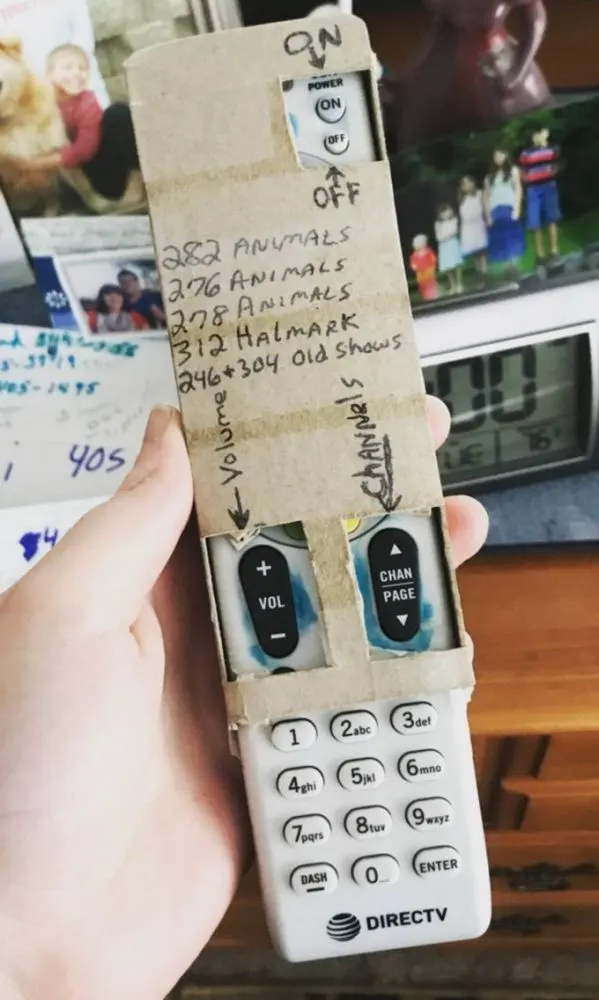 ON
POWER
ON
OFF
OFF
282 ANIMALS
276 ANIMALS
278 ANIMALS
312 HAlMARK
246+304 Old Shows
Volume
CHANNElS
+
VOL
−
CHAN
PAGE
1
2abc
3def
4ghi
5jkl
6mno
7pqrs
8tuv
9wxyz
DASH
0
ENTER
DIRECTV
405
00